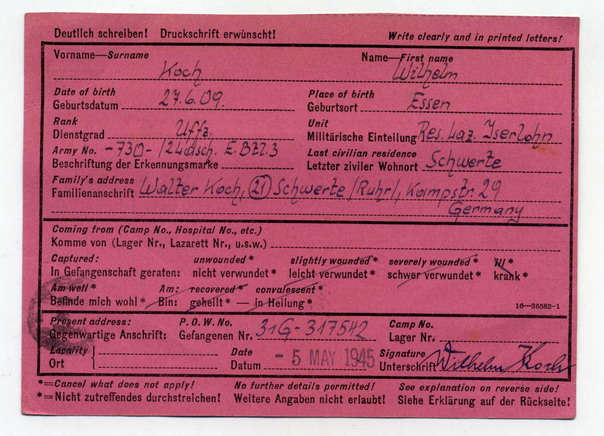 Deutlich schreiben! Druckschrift erwünscht! Write clearly and in printed letters!
Vorname—Surname Name—First name
Koch Wilhelm
Date of birth Place of birth
Geburtsdatum 27.6.09. Geburtsort Essen
Rank Unit
Dienstgrad Uffz. Militärische Einteilung Res. Laz. Iserlohn
Army No. -730-/24dsch. E.Btl.3 Last civilian residence
Beschriftung der Erkennungsmarke Letzter ziviler Wohnort Schwerte
Family's address
Familienanschrift Walter Koch, (21) Schwerte/Ruhr/, Kampstr. 29
Germany
Coming from (Camp No., Hospital No., etc.)
Komme von (Lager Nr., Lazarett Nr., u.s.w.)
Captured: unwounded* slightly wounded* severely wounded* ill*
In Gefangenschaft geraten: nicht verwundet* leicht verwundet* schwer verwundet* krank*
Am well* Am: recovered* convalescent*
Befinde mich wohl* Bin: geheilt* — in Heilung* 16—36582-1
Present address: P.O.W. No. Camp No.
Gegenwartige Anschrift: Gefangenen Nr. 31G-317542 Lager Nr.
Locality Date Signature
Ort Datum - 5 MAY 1945 Unterschrift Wilhelm Koch
*=Cancel what does not apply! No further details permitted! See explanation on reverse side!
*=Nicht zutreffendes durchstreichen! Weitere Angaben nicht erlaubt! Siehe Erklärung auf der Rückseite!